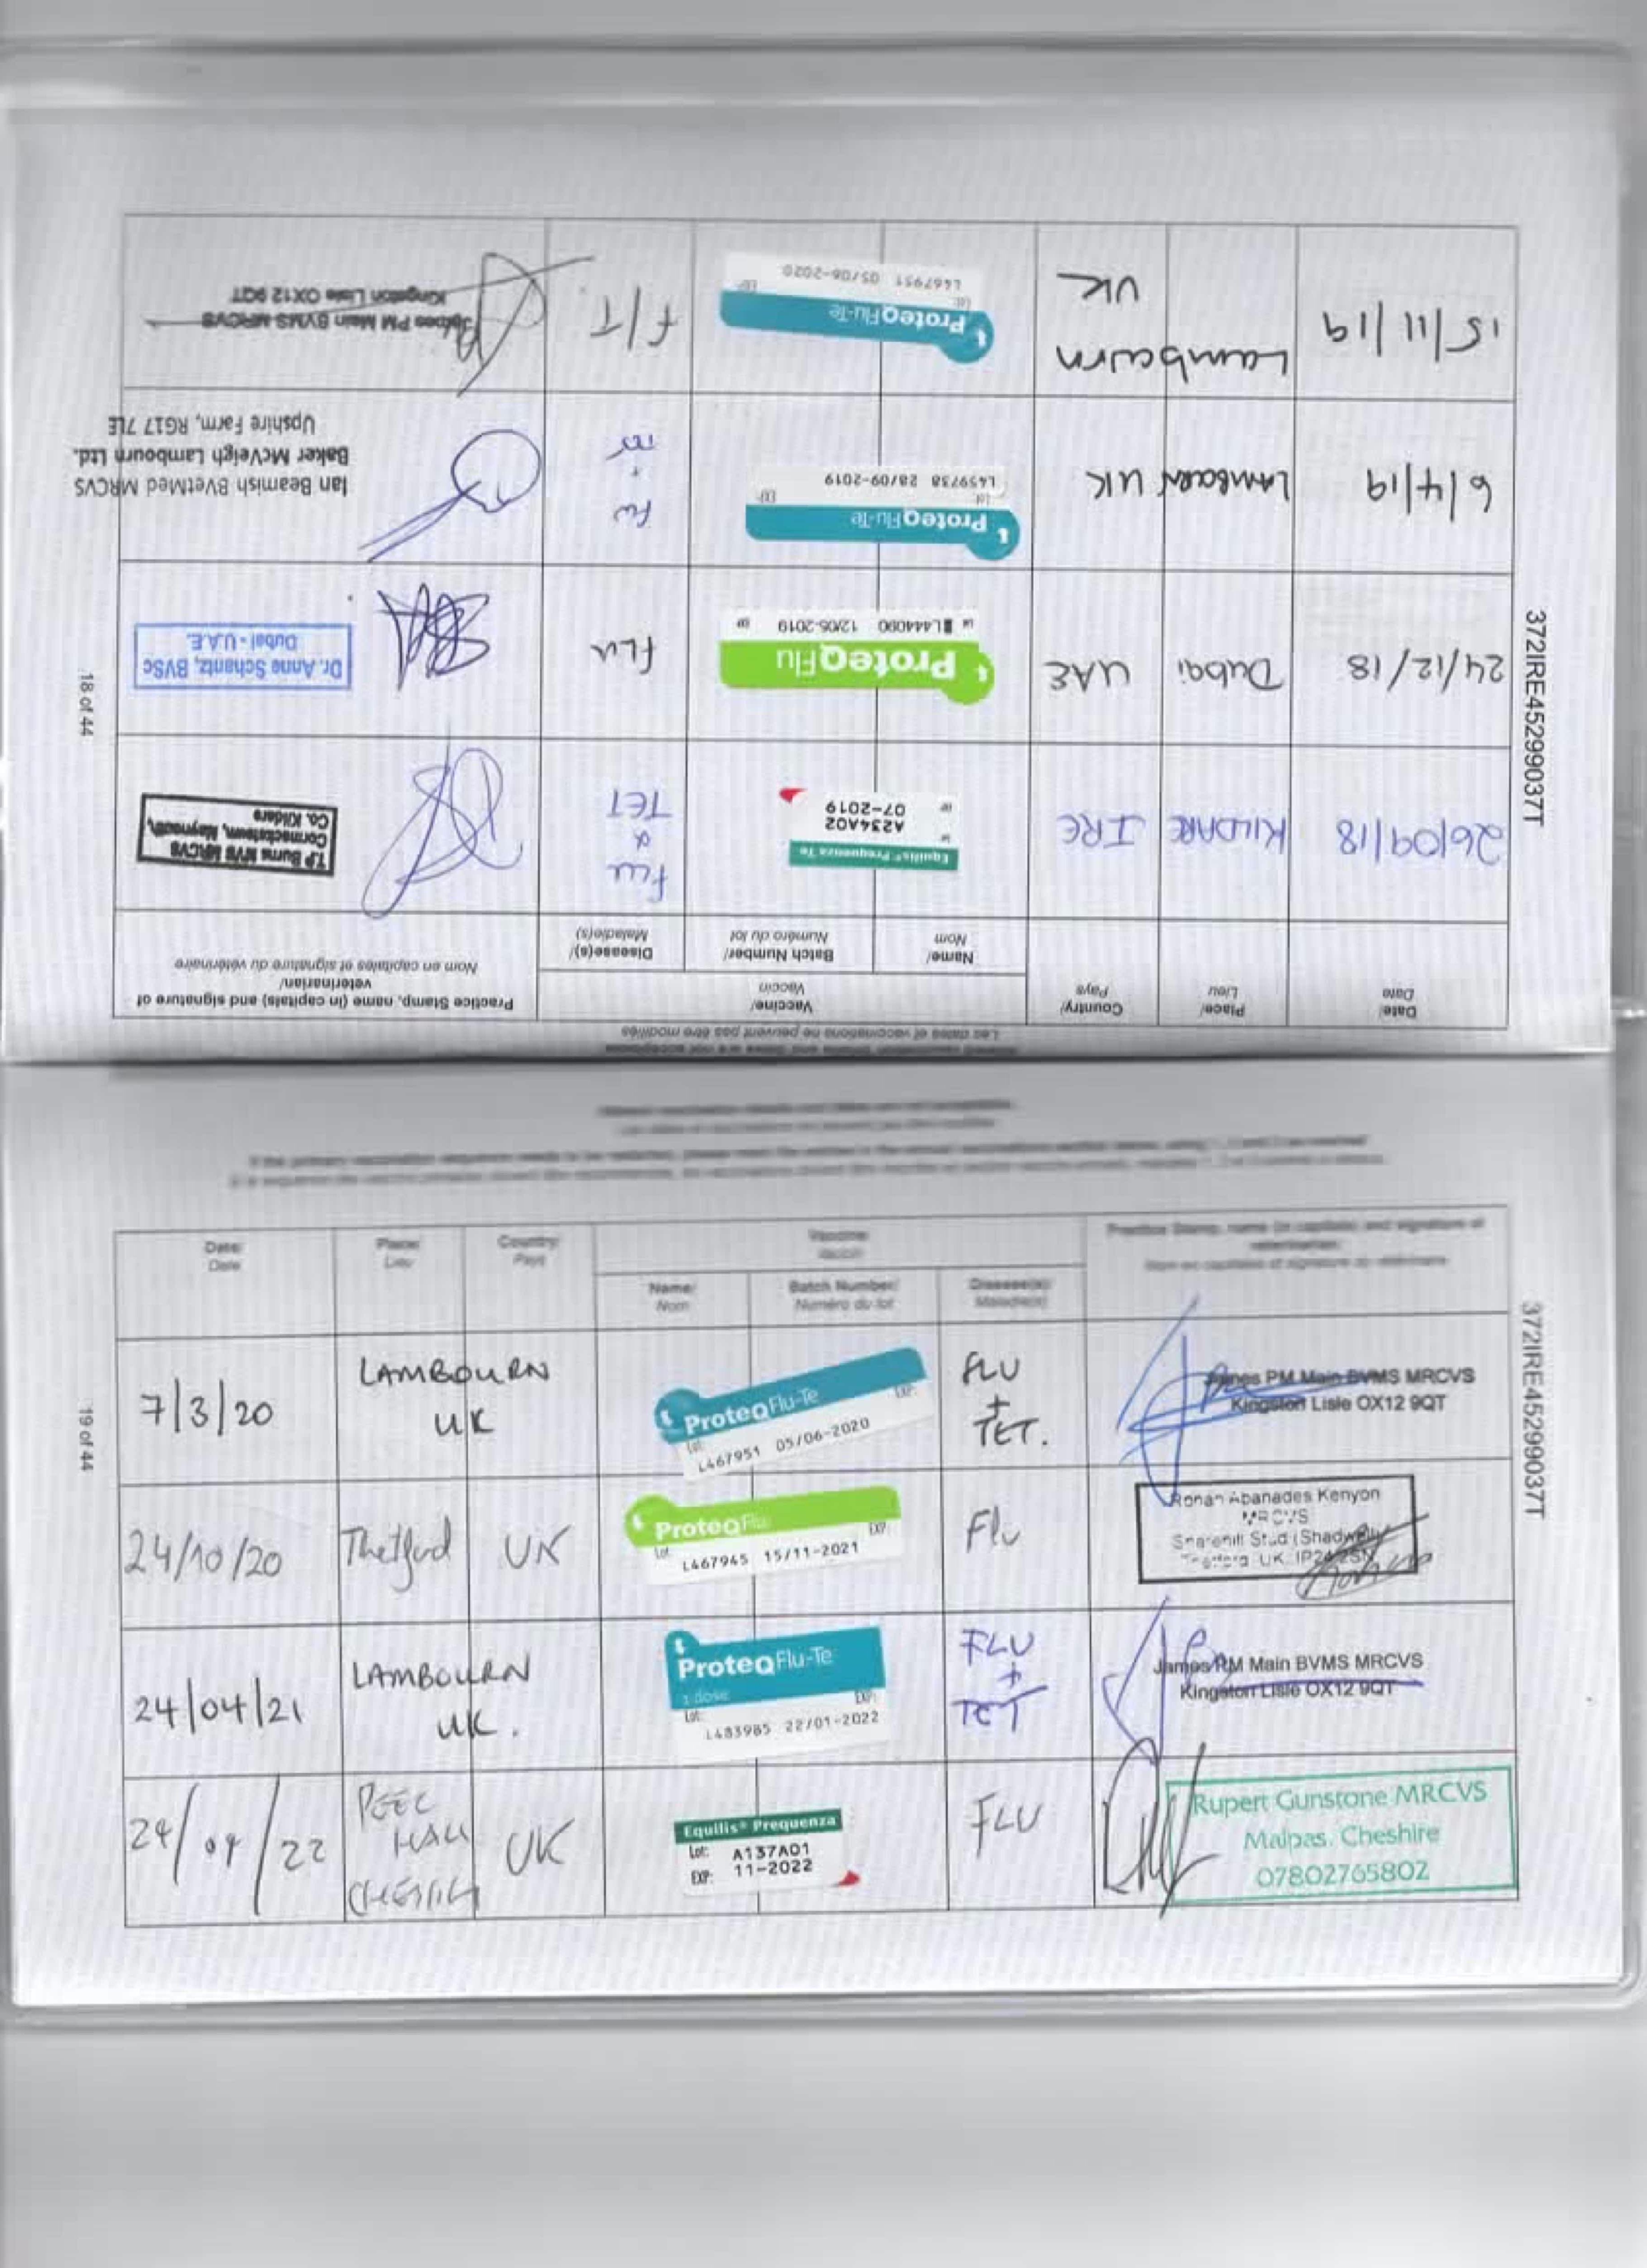 Les dates et vaccinations ne peuvent pas être modifiés
Date/
Date
Place/
Lieu
Country/
Pays
Vaccine/
Vaccin
Name/
Nom
Batch Number/
Numéro du lot
Disease(s)/
Maladie(s)
Practice Stamp, name (in capitals) and signature of
veterinarian/
Nom en capitales et signature du vétérinaire
26/09/18
KILDARE
IRE
Equilis® Prequenza Te
A234A02
07-2019
Flu
&
TET
T.P Burns MVB MRCVS
Cormackstown, Maynooth,
Co. Kildare
24/12/18
Dubai
UAE
ProteqFlu
L444090 12/05-2019
FLU
Dr. Anne Schantz, BVSc
Dubai - U.A.E.
6/4/19
LAMBOURN UK
ProteqFlu-Te
Lot: EXP:
L459738 28/09-2019
Flu
+
Ian Beamish BVetMed MRCVS
Baker McVeigh Lambourn Ltd.
Upshire Farm, RG17 7LE
15/11/19
Lambourn
UK
ProteqFlu-Te
Lot: EXP:
L467951 05/06-2020
F/T
James PM Main BVMS MRCVS
Kingston Lisle OX12 9QT
18 of 44
372IRE45299037T
Date/
Date
Place/
Lieu
Country/
Pays
Vaccine/
Name/
Nom
Batch Number/
Numéro du lot
Disease(s)/
Maladie(s)
7/3/20
LAMBOURN
UK
ProteqFlu-Te
Lot: EXP:
L467951 05/06-2020
FLU
+
TET.
James PM Main BVMS MRCVS
Kingston Lisle OX12 9QT
24/10/20
Thetford
UK
ProteqFlu
Lot: EXP:
L467945 15/11-2021
Flu
Ronan Abanades Kenyon
MRCVS
Snarehill Stud (Shadwell)
Thetford UK IP24 2SN
24/04/21
LAMBOURN
UK.
ProteqFlu-Te
1 dose
Lot: EXP:
L483985 22/01-2022
FLU
+
TET
James PM Main BVMS MRCVS
Kingston Lisle OX12 9QT
24/04/22
PEEL
HALL
CHESHIRE
UK
Equilis® Prequenza
Lot: A137A01
EXP: 11-2022
FLU
Rupert Gunstone MRCVS
Malpas. Cheshire
07802765802
19 of 44
372IRE45299037T